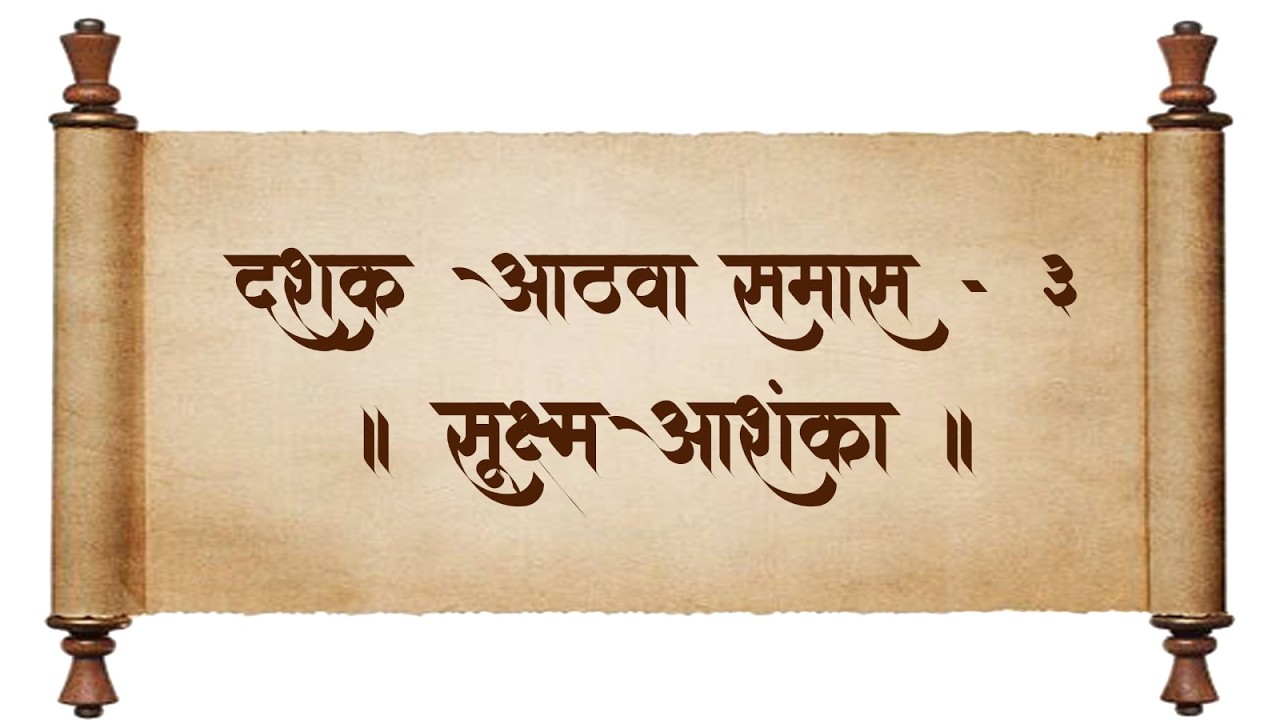 दशक आठवा समास - ३
॥ सूक्ष्म आशंका ॥